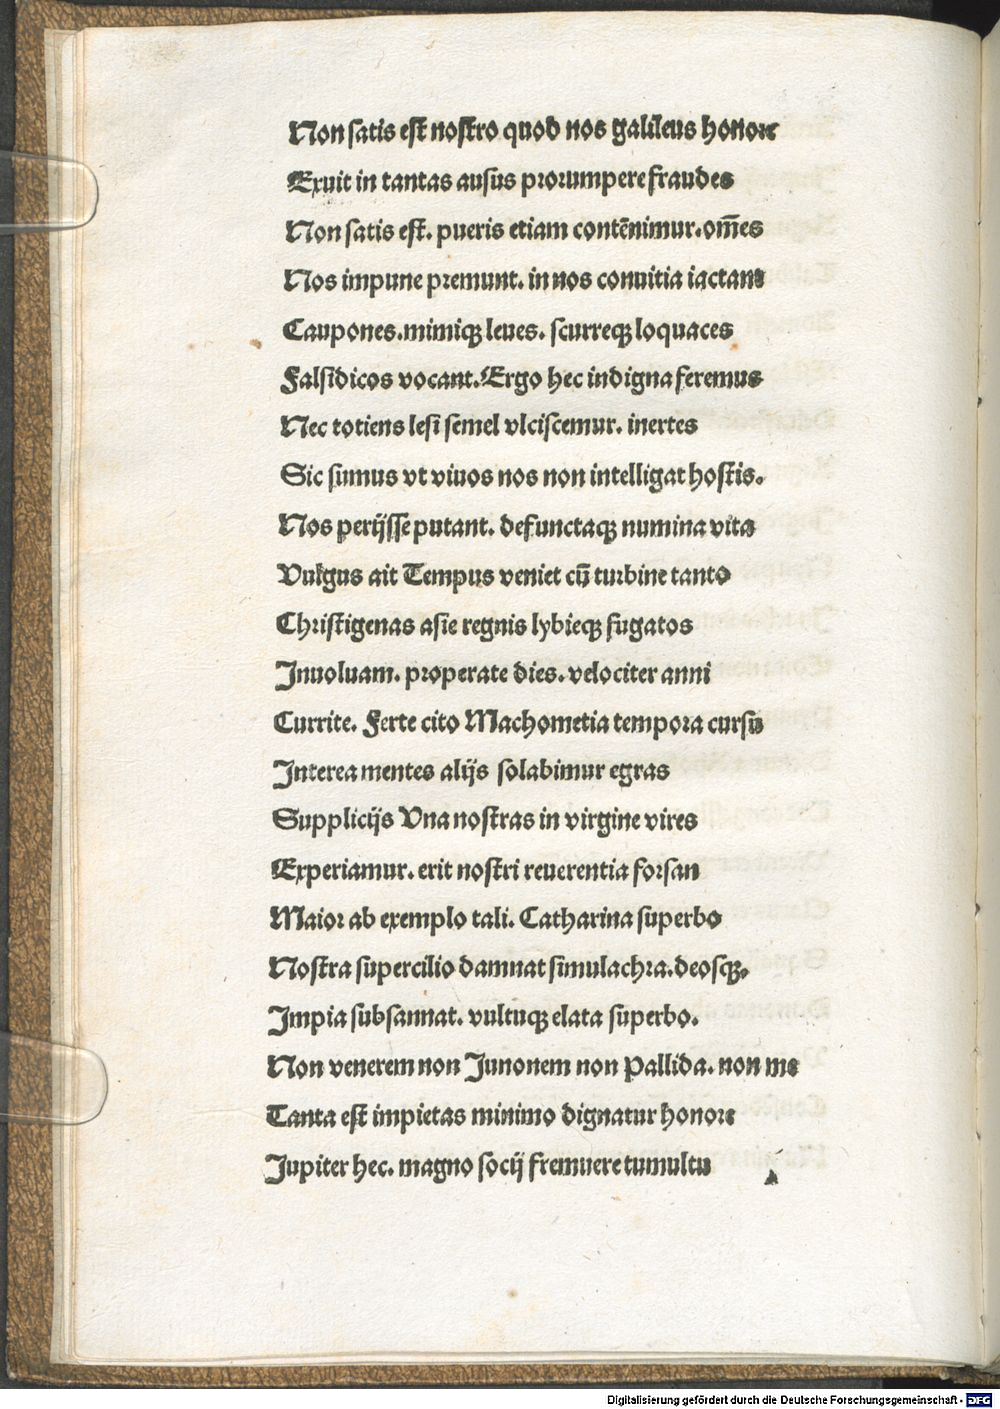 Non satis est nostro quod nos galileus honore
Exuit in tantas ausus prorumpere fraudes
Non satis est. pueris etiam contēnimur. om̄es
Nos impune premunt. in nos conuitia iactant
Caupones. mimiqꝫ leues. scurreqꝫ loquaces
Falsidicos vocant. Ergo hec indigna feremus
Nec totiens lesi semel vlciscemur. inertes
Sic sumus vt viuos nos non intelligat hostis.
Nos perijsse putant. defunctaqꝫ numina vita
Vulgus ait Tempus veniet cū turbine tanto
Christigenas asie regnis lybieqꝫ fugatos
Inuoluam. properate dies. velociter anni
Currite. Ferte cito Machometia tempora cursu
Interea mentes alijs solabimur egras
Supplicijs Vna nostras in virgine vires
Experiamur. erit nostri reuerentia forsan
Maior ab exemplo tali. Catharina superbo
Nostra supercilio damnat simulachra. deosqꝫ.
Impia subsannat. vultuqꝫ elata superbo.
Non venerem non Junonem non Pallida. non me
Tanta est impietas minimo dignatur honore
Jupiter hec. magno socij fremuere tumultu
Digitalisierung gefördert durch die Deutsche Forschungsgemeinschaft - DFG